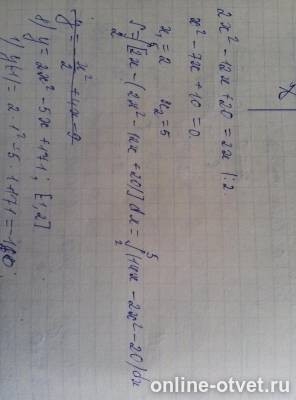 2x² - 12x + 20 = 2x |:2
x² - 7x + 10 = 0
x₁ = 2 x₂ = 5
S = ∫[2x - (2x² - 12x + 20)]dx = ∫₂⁵(14x - 2x² - 20)dx
y = x²/2 + 4x - 9
y = 2x² - 5x + 171; [1,2]
1) y(1) = 2·1² - 5·1 + 171 =
online-otvet.ru